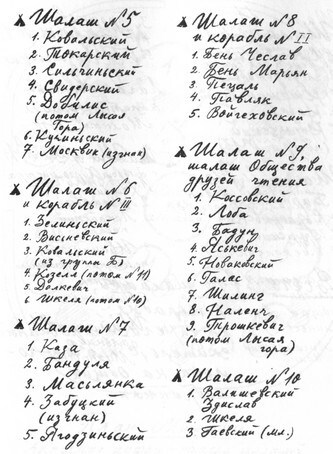 Шалаш №5
1. Ковальский
2. Токарский
3. Сильчиньский
4. Свидерский
5. Довилис
(потом Лысая
Гора)
6. Кучиньский
7. Москвик (изгнан)
Шалаш №6
и корабль № III
1. Зелиньский
2. Висьневский
3. Ковальский
(из группы Б)
4. Козелл (потом №11)
5. Долкевич
6. Шкеля (потом №10)
Шалаш №7
1. Каза
2. Бандуля
3. Масьлянка
4. Забуцкий
(изгнан)
5. Ягодзиньский
Шалаш №8
и корабль № II
1. Бень Чеслав
2. Бень Марьян
3. Пецаль
4. Павляк
5. Войчеховский
Шалаш №9,
шалаш Общества
друзей чтения
1. Коссовский
2. Лоба
3. Бадух
4. Яскевич
5. Новаковский
6. Галас
7. Шилинг
8. Наленч
9. Трошкевич
(потом Лысая
гора)
Шалаш №10
1. Валишевский
Здислав
2. Шкеля
3. Гаевский (мл.)